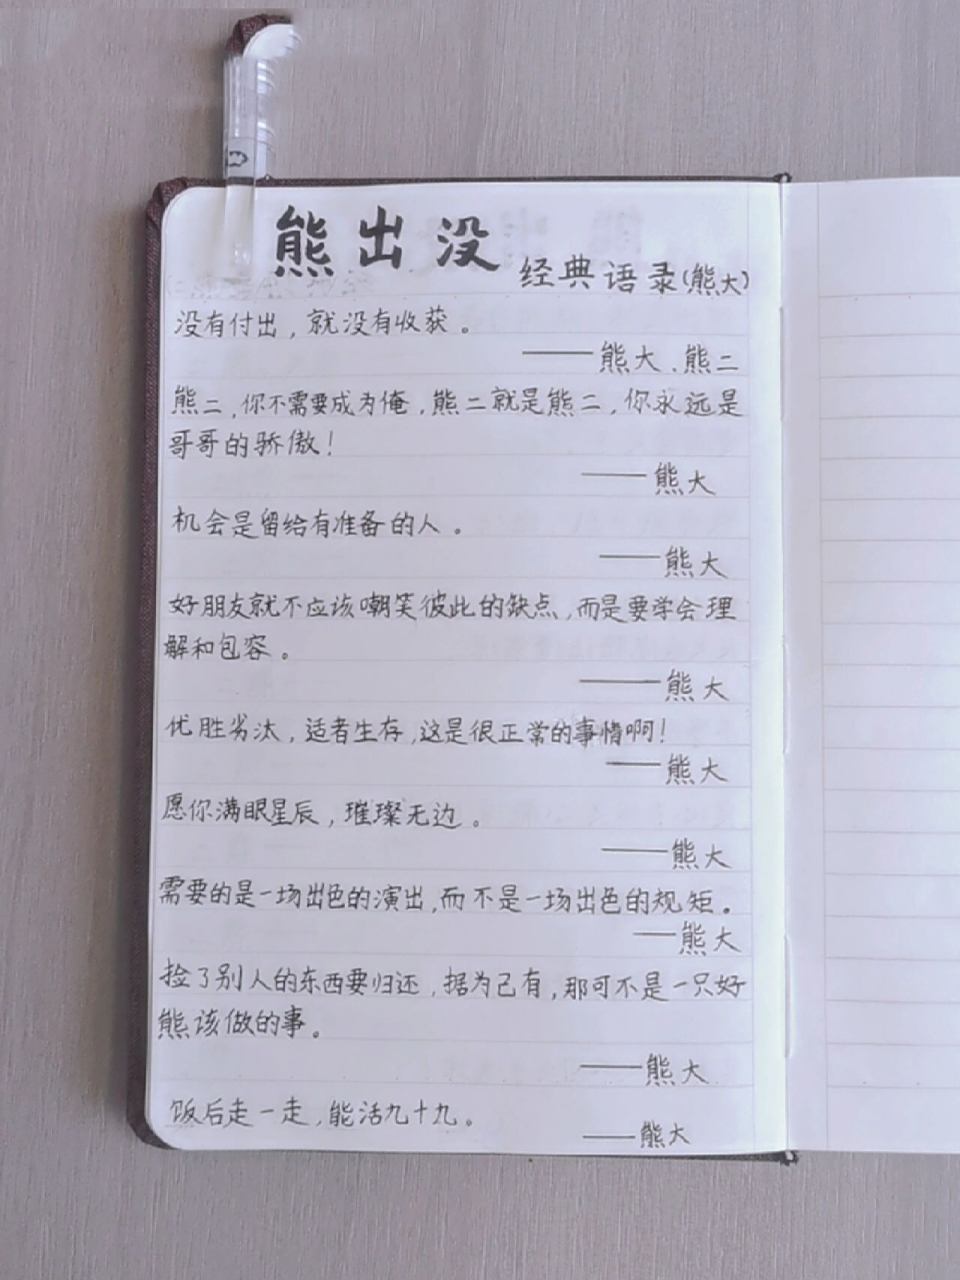 熊出没
经典语录(熊大)
没有付出，就没有收获。
——熊大、熊二
熊二，你不需要成为俺，熊二就是熊二，你永远是
哥哥的骄傲！
——熊大
机会是留给有准备的人。
——熊大
好朋友就不应该嘲笑彼此的缺点，而是要学会理
解和包容。
——熊大
优胜劣汰，适者生存，这是很正常的事情啊！
——熊大
愿你满眼星辰，璀璨无边。
——熊大
需要的是一场出色的演出，而不是一场出色的规矩。
——熊大
捡了别人的东西要归还，据为己有，那可不是一只好
熊该做的事。
——熊大
饭后走一走，能活九十九。
——熊大